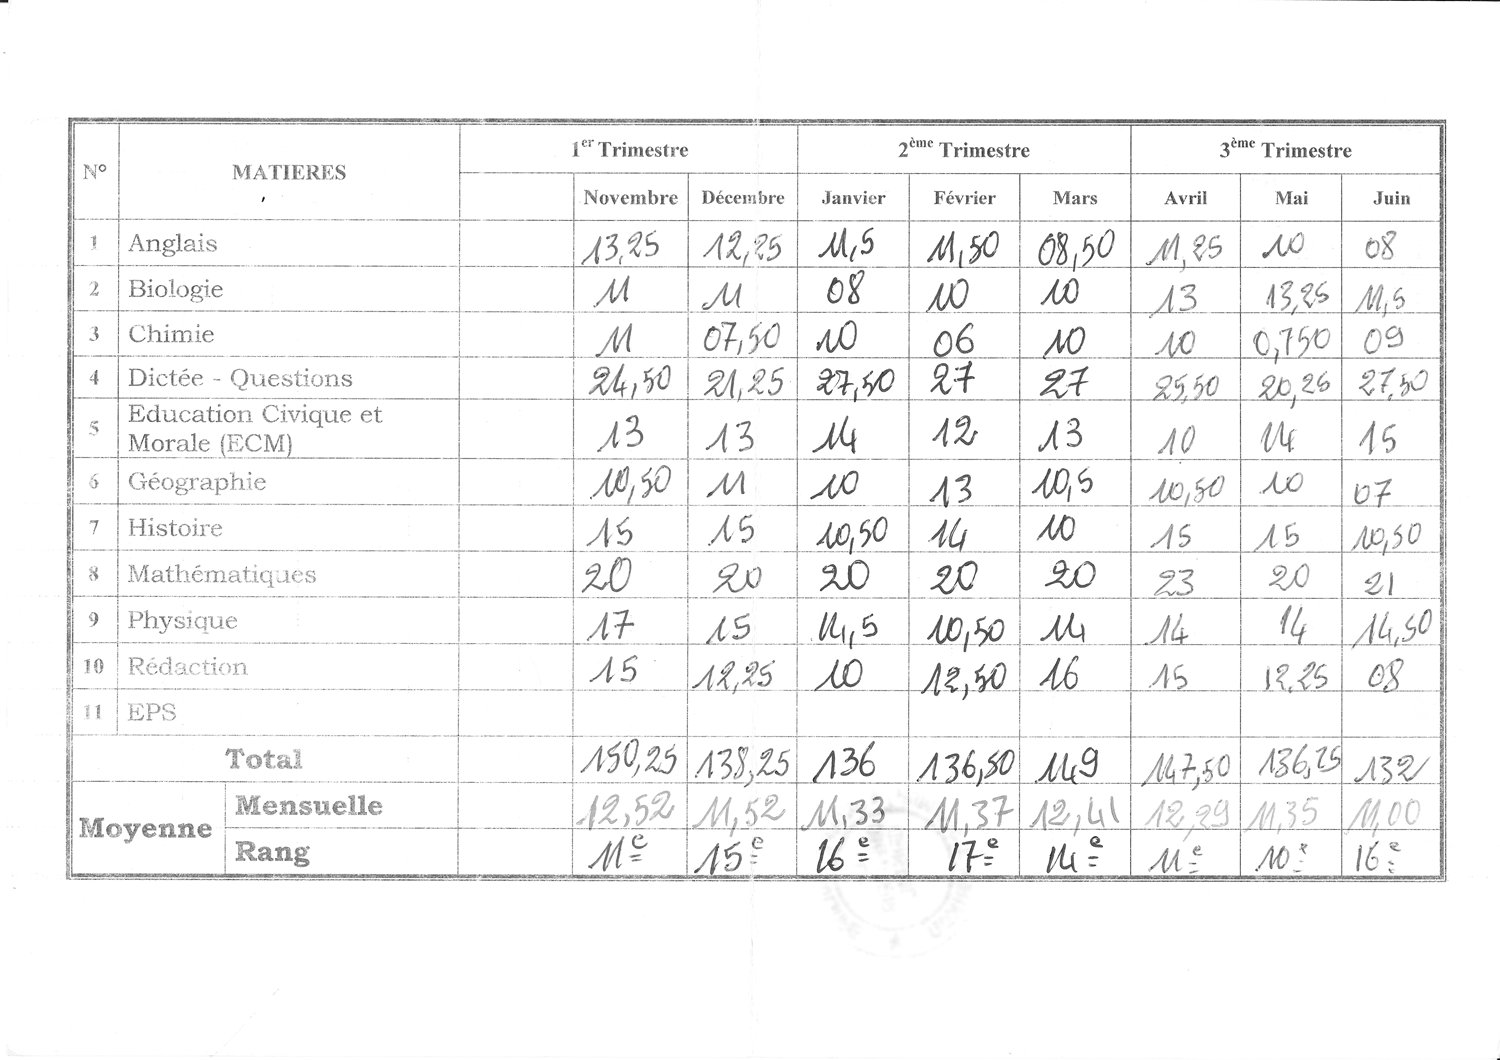 N° MATIERES 1er Trimestre 2ème Trimestre 3ème Trimestre
Novembre Décembre Janvier Février Mars Avril Mai Juin
1 Anglais 13,25 12,25 11,5 11,50 08,50 11,25 10 08
2 Biologie 11 11 08 10 10 13 13,25 11,5
3 Chimie 11 07,50 10 06 10 10 0,750 09
4 Dictée - Questions 24,50 21,25 27,50 27 27 25,50 20,25 27,50
5 Education Civique et
Morale (ECM) 13 13 14 12 13 10 14 15
6 Géographie 10,50 11 10 13 10,5 10,50 10 07
7 Histoire 15 15 10,50 14 10 15 15 10,50
8 Mathématiques 20 20 20 20 20 23 20 21
9 Physique 17 15 14,5 10,50 14 14 14 14,50
10 Rédaction 15 12,25 10 12,50 16 15 12,25 08
11 EPS
Total 150,25 138,25 136 136,50 149 147,50 136,25 132
Moyenne
Mensuelle 12,52 11,52 11,33 11,37 12,41 12,29 11,35 11,00
Rang 11e 15e 16e 17e 14e 11e 10e 16e